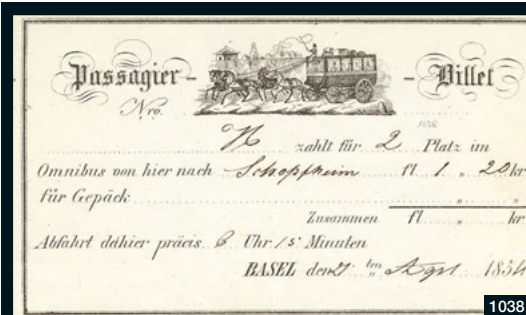 Passagier - - Billet
Nro.
H zahlt für 2 Platz im
Omnibus von hier nach Schopfheim fl 1 " 20 kr
für Gepäck " "
Zusammen fl " kr
Abfahrt dahier präcis 6 Uhr 15 Minuten
BASEL den 21 ten Agst 1854
1038